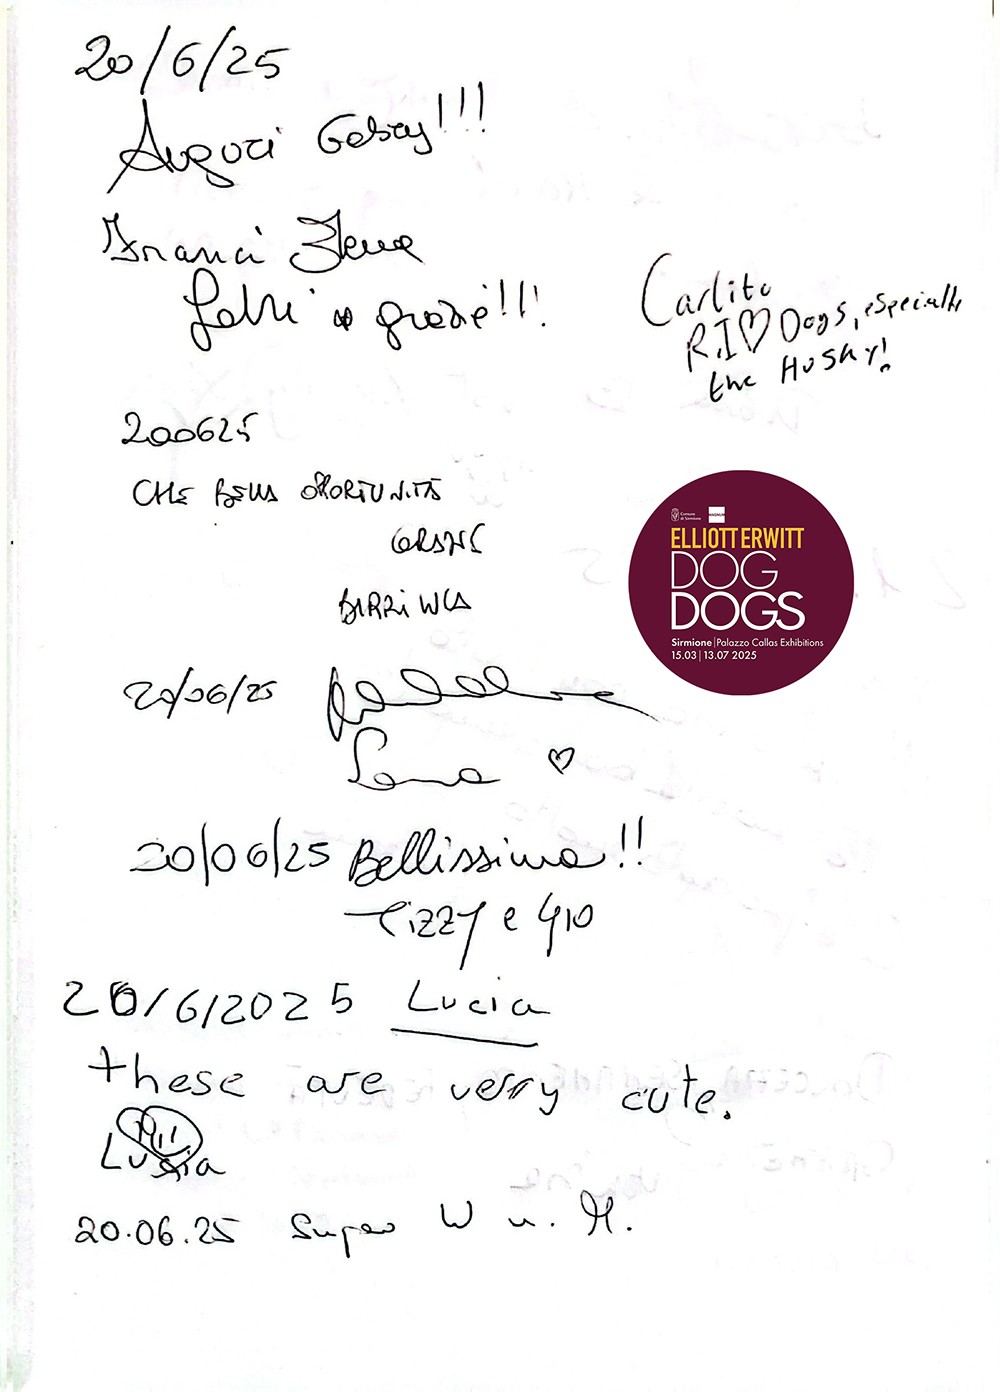 20/6/25
Auguri Gabry!!!
Franci Elena
Gabri e grazie!!!
Carlito
R.I♡Dogs, especially
the Husky!
200625
CHE BELLA OPPORTUNITÀ
GRAZIE
Comune
di Sirmione
MAGNUM
ELLIOTT ERWITT
DOG
DOGS
Sirmione | Palazzo Callas Exhibitions
15.03 | 13.07 2025
20/06/25
♡
20/06/25 Bellissima!!
Tizzy e Gio
20/6/2025 Lucia
these are very cute.
Lucia
20.06.25 Super W u. M.